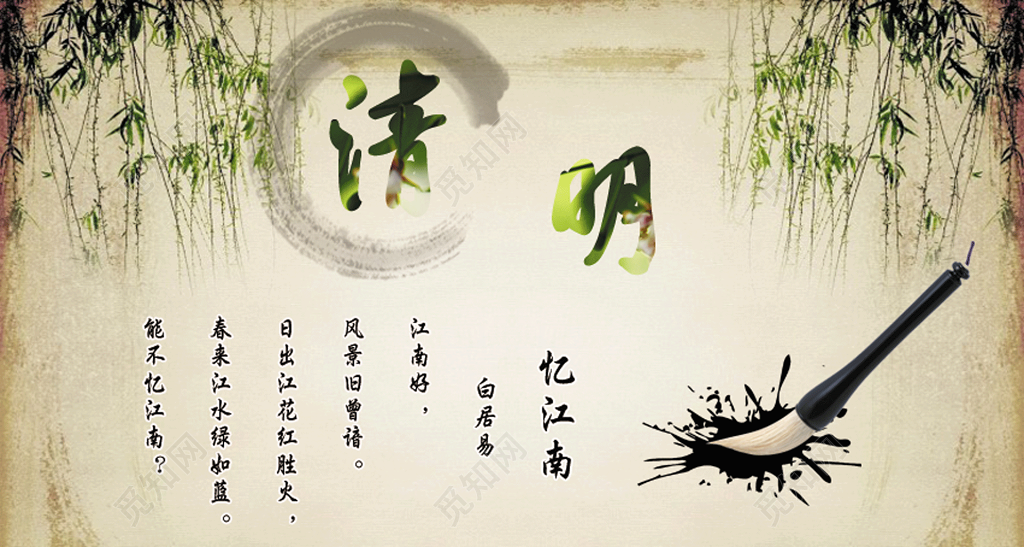 清明
忆江南
白居易
江南好，
风景旧曾谙。
日出江花红胜火，
春来江水绿如蓝。
能不忆江南？
觅知网
觅知网
觅知网
觅知网
觅知网